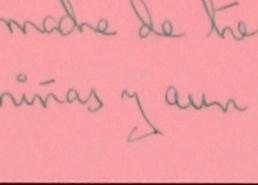 madre de tre
niñas y aun